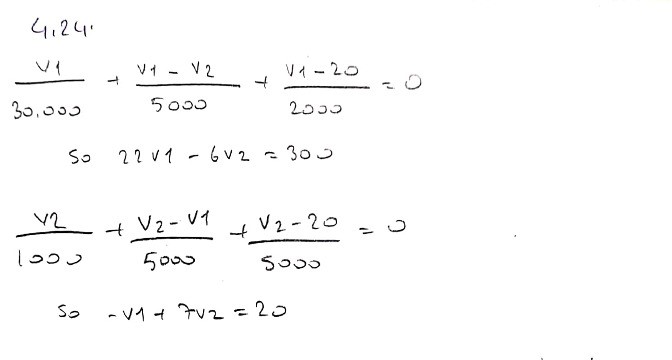 4.24.
V1/30.000 + V1 - V2/5000 + V1 - 20/2000 = 0
So 22V1 - 6V2 = 300
V2/1000 + V2 - V1/5000 + V2 - 20/5000 = 0
So -V1 + 7V2 = 20